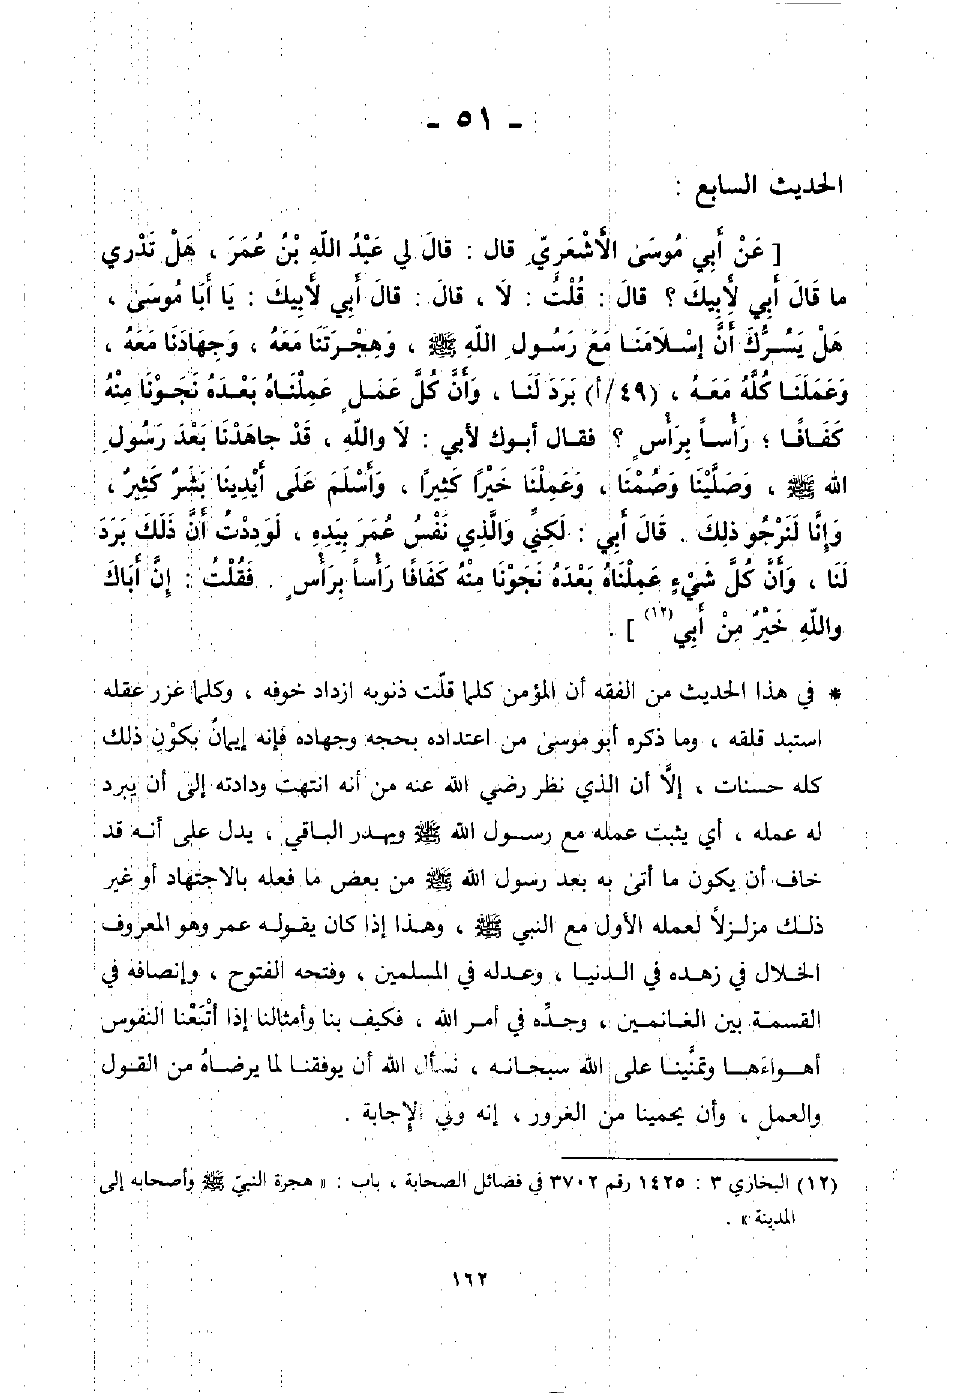 - ٥١ -
الحديث السابع :
[ عَنْ أَبِي مُوسَىٰ الأَشْعَرِيِّ قال : قالَ لي عَبْدُ اللّهِ بْنُ عُمَرَ ، هَلْ تَدْري
ما قَالَ أَبي لِأَبِيكَ ؟ قالَ : قُلْتُ : لَا ، قالَ : قالَ أَبي لأَبيكَ : يَا أَبَا مُوسَىٰ ،
هَلْ يَسُرُّكَ أَنَّ إِسْلَامَنَا مَعَ رَسُولِ اللّهِ ﷺ ، وَهِجْرَتَنَا مَعَهُ ، وَجِهَادَنَا مَعَهُ ،
وَعَمَلَنَا كُلَّهُ مَعَهُ ، (٤٩/أ) بَرَدَ لَنَا ، وَأَنَّ كُلَّ عَمَلٍ عَمِلْنَاهُ بَعْدَهُ نَجَوْنَا مِنْهُ
كَفَافًا ؛ رَأْساً بِرَأْسٍ ؟ فقال أبوك لأبي : لَا واللّهِ ، قَدْ جاهَدْنَا بَعْدَ رَسُولِ
الله ﷺ ، وَصَلَّيْنَا وَصُمْنَا ، وَعَمِلْنَا خَيْرًا كَثِيرًا ، وَأَسْلَمَ عَلَى أَيْدِينَا بَشَرٌ كَثِيرٌ ،
وَإِنَّا لَنَرْجُو ذلِكَ . قَالَ أَبِي : لَكِنِّي وَالَّذِي نَفْسُ عُمَرَ بِيَدِهِ ، لَوَدِدْتُ أَنَّ ذَلَكَ بَرَدَ
لَنَا ، وَأَنَّ كُلَّ شَيْءٍ عَمِلْنَاهُ بَعْدَهُ نَجَوْنَا مِنْهُ كَفَافًا رَأْساً بِرَأْسٍ . فَقُلْتُ : إِنَّ أَبَاكَ
واللّهِ خَيْرٌ مِنْ أَبِي(١٢) ] .
* في هذا الحديث من الفقه أن المؤمن كلما قلّت ذنوبه ازداد خوفه ، وكلما غزر عقله
استبد قلقه ، وما ذكره أبو موسىٰ من اعتداده بحجه وجهاده فإنه إيمانٌ بكوْنِ ذلك
كله حسنات ، إلَّا أن الذي نظر رضي الله عنه من أنه انتهت ودادته إلى أن يبرد
له عمله ، أي يثبت عمله مع رسول الله ﷺ ويهدر الباقي ، يدل على أنه قد
خاف أن يكون ما أتىٰ به بعد رسول الله ﷺ من بعض ما فعله بالاجتهاد أو غير
ذلك مزلزلاً لعمله الأول مع النبي ﷺ ، وهذا إذا كان يقوله عمر وهو المعروف
الخلال في زهده في الدنيا ، وعدله في المسلمين ، وفتحه الفتوح ، وإنصافه في
القسمة بين الغانمين ، وجدِّه في أمر الله ، فكيف بنا وأمثالنا إذا أتْبَعْنا النفوس
أهواءَها وتمنَّينا على الله سبحانه ، نسأل الله أن يوفقنا لما يرضاهُ من القول
والعمل ، وأن يحمينا من الغرور ، إنه ولي الإجابة .
(١٢) البخاري ٣ : ١٤٢٥ رقم ٣٧٠٢ في فضائل الصحابة ، باب : « هجرة النبيّ ﷺ وأصحابه إلى
المدينة » .
١٦٢